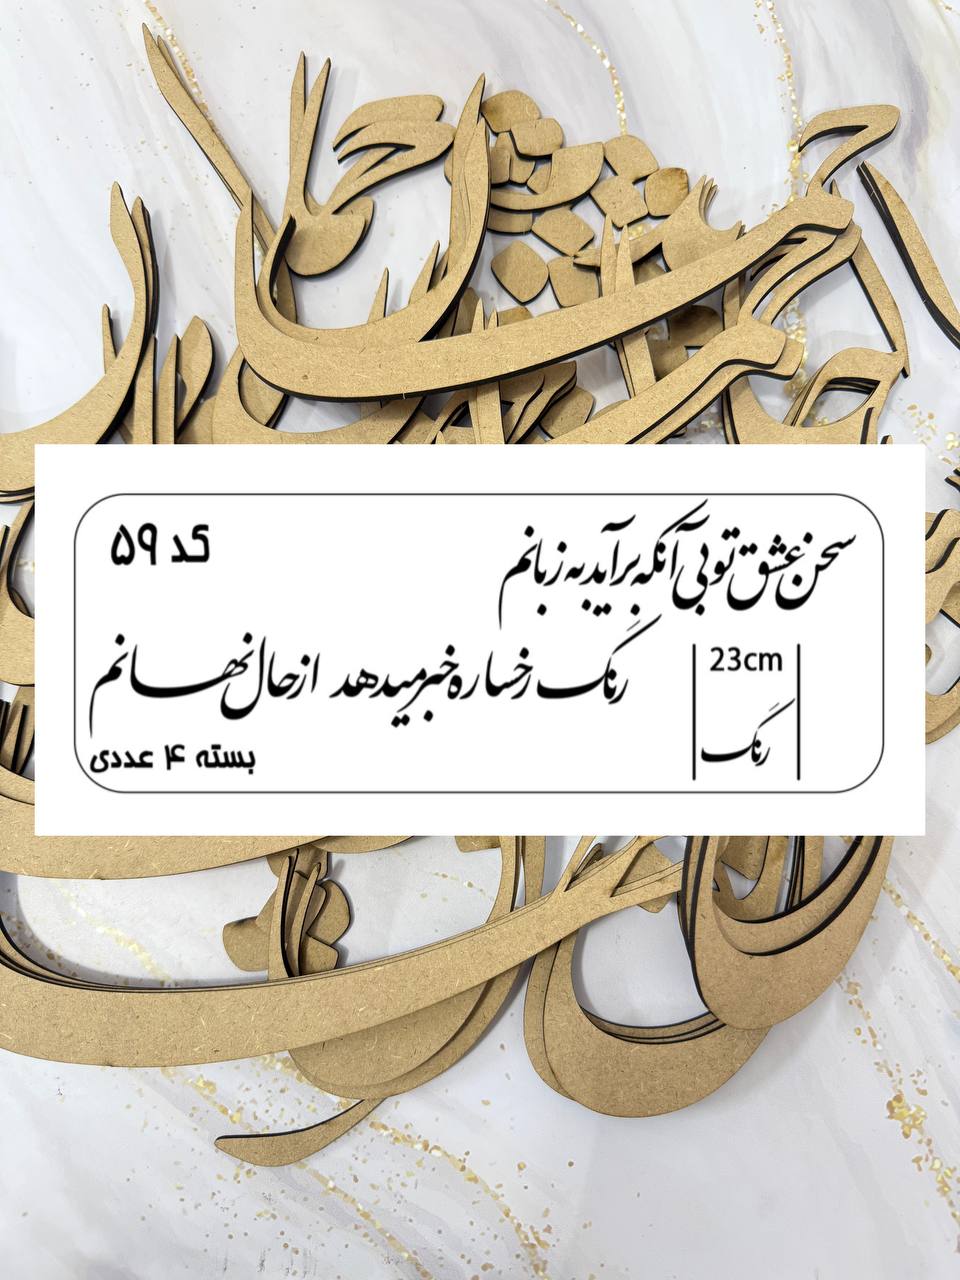 کد ۵۹
سخن عشق تو بی آنکه برآید به زبانم
رنگ رخساره خبر میدهد از حال نهانم
23cm
رنگ
بسته ۴ عددی